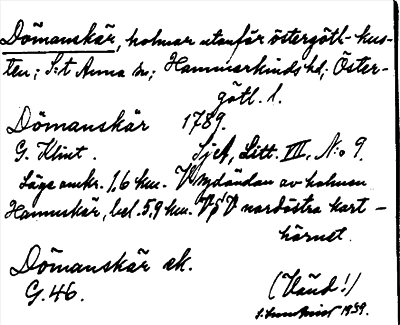 Dömanskär, holmar utanför östergötl-kus-
ten; S:t Anna sn; Hammarkinds hd; Öster-
götl. l.
Dömanskär 1789.
G. Klint. Sjök, Litt. III, N:o 9.
Läge omkr. 1,6 km. V sydändan av holmen
Hamnskär, bel. 5,9 km. V nordöstra kart-
hörnet.
Dömanskär ek.
G. 46. (Vänd!)
1939.